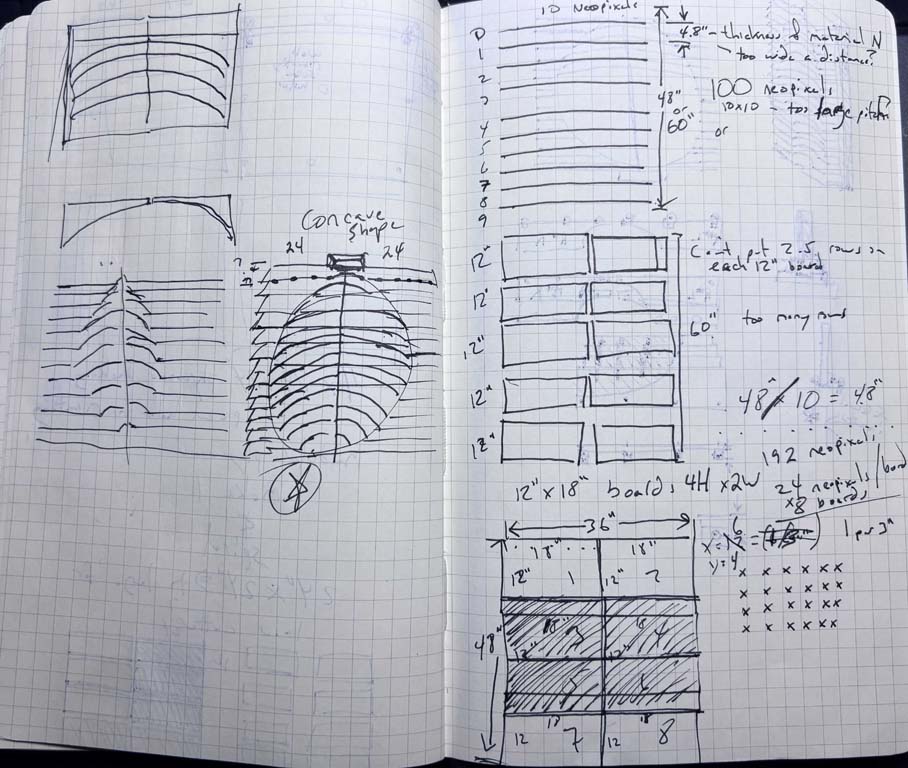 Concave
shape
24
24
10 Neopixels
0
1
2
3
4
5
6
7
8
9
4.8" - thickness of material N
too wide a distance?
48"
or
60"
100 neopixels
10x10 - too large pitch?
or
12"
12"
12"
12"
12"
60"
Can't put 2.5 rows on
each 12" board
too many rows
48" / 10 = 4.8"
192 neopixels
24 neopixels/board
x8 boards
12" x 18" boards 4H x 2W
36"
18"
18"
12"
1
12"
2
48"
18"
3
18
4
12"
12"
5
18
18
12
7
12
8
6
x =
y = 4
1 per 3"
x x x x x x
x x x x x x
x x x x x x
x x x x x x